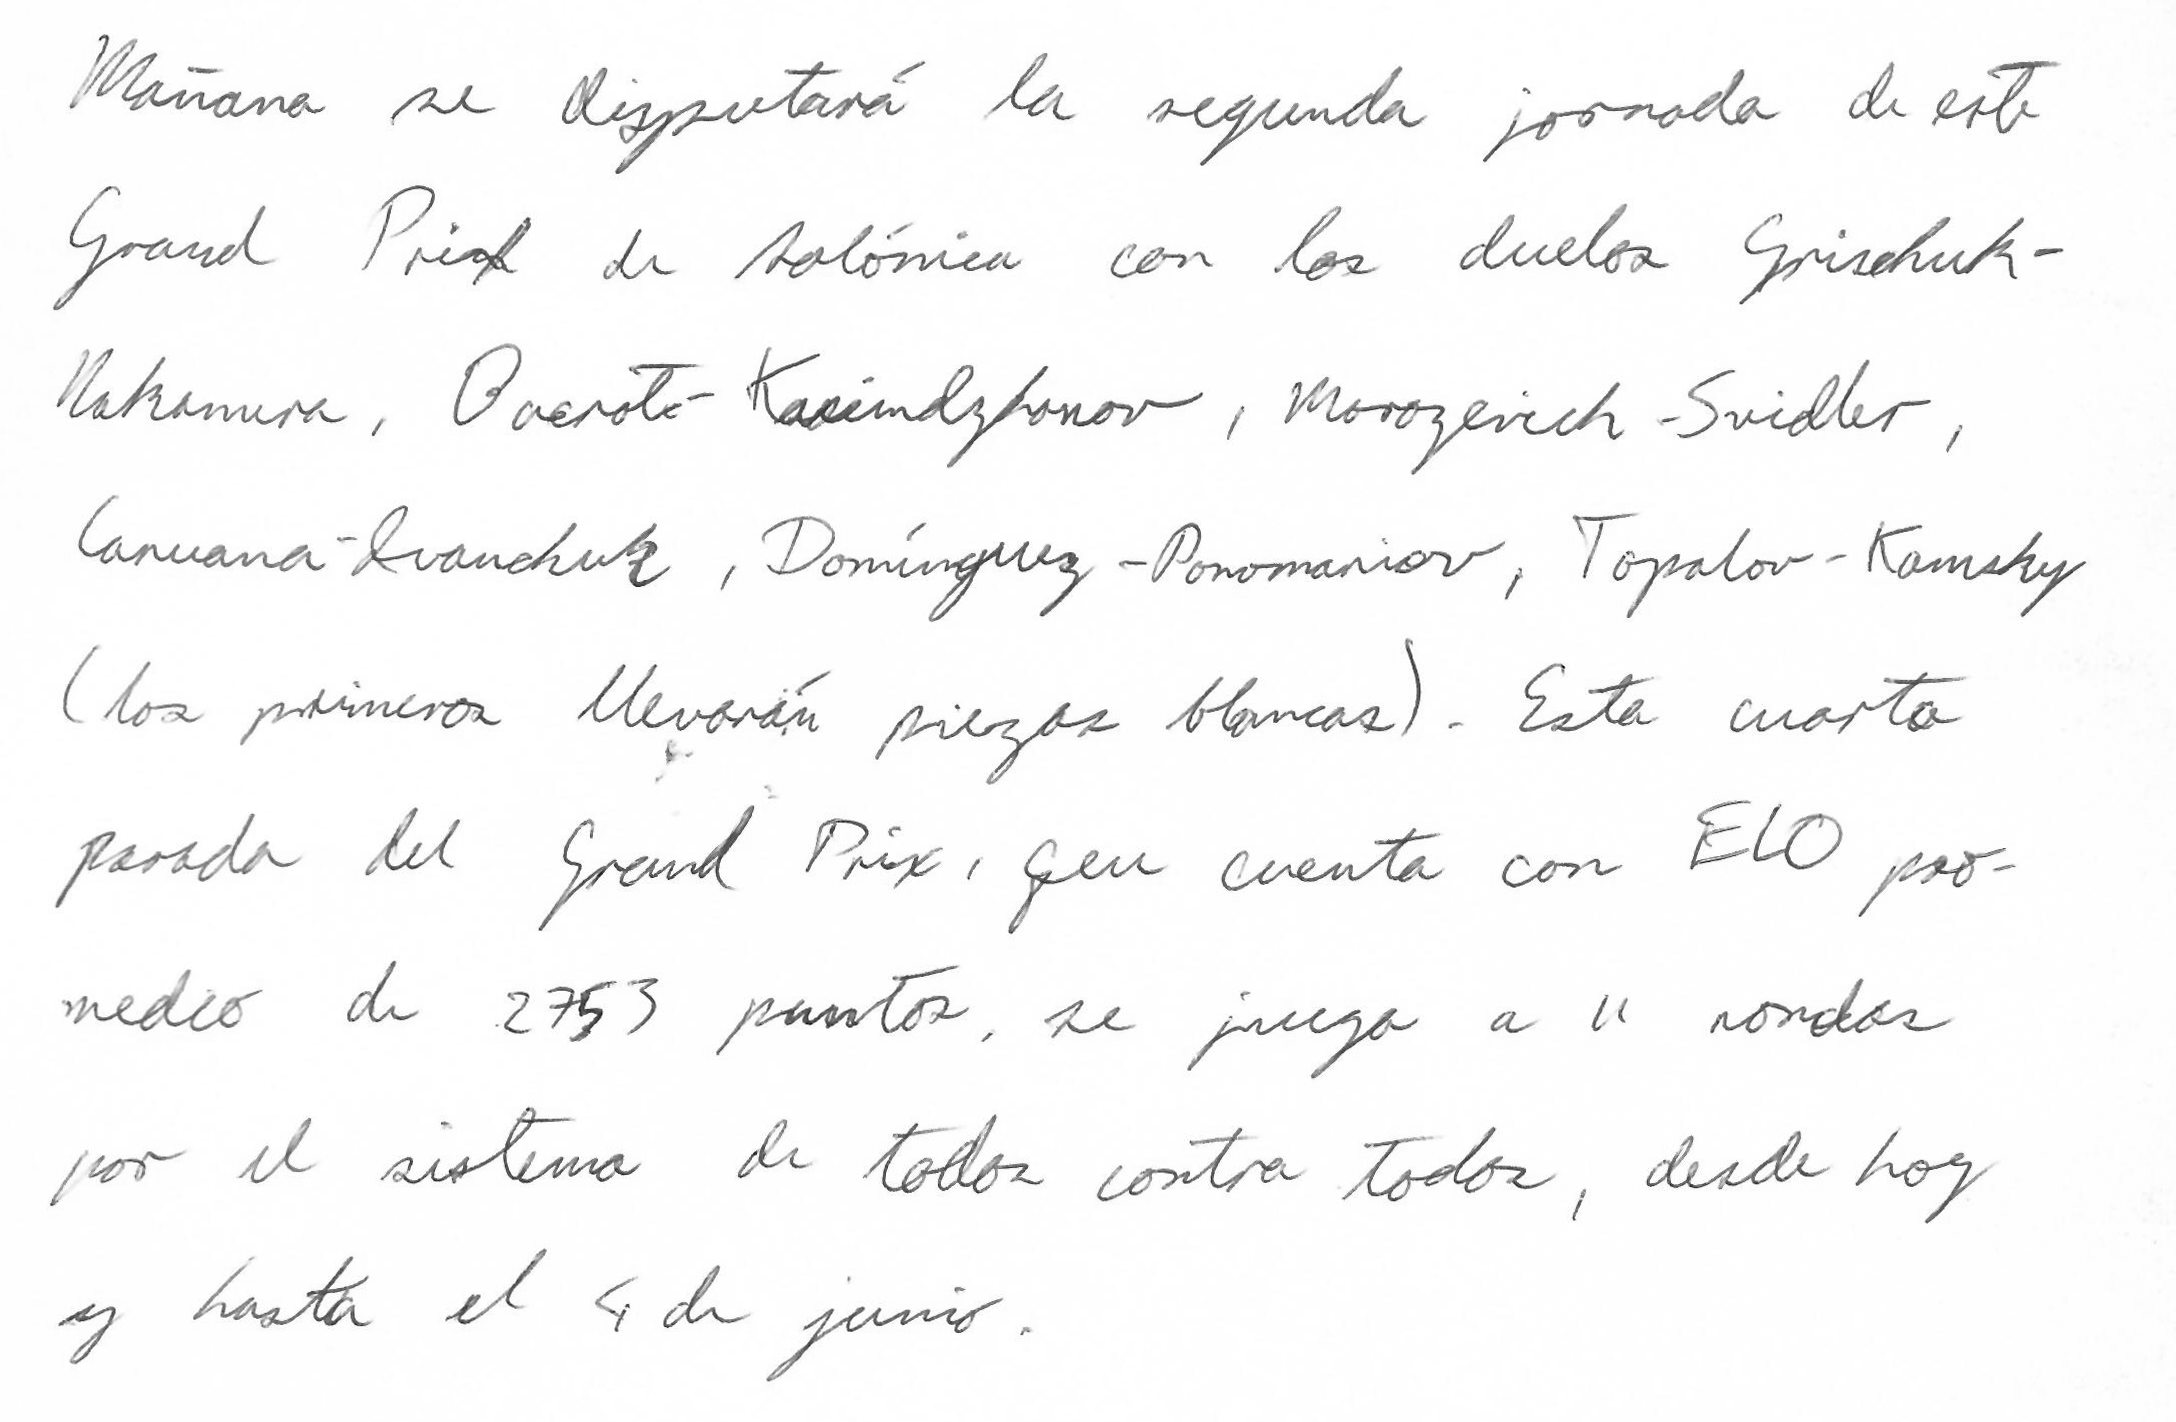 Mañana se disputará la segunda jornada de este
Grand Prix de Salónica con los duelos Grischuk-
Nakamura, Bacrot-Kasimdzhanov, Morozevich-Svidler,
Caruana-Ivanchuk, Domínguez-Ponomariov, Topalov-Kamsky
(los primeros llevarán piezas blancas). Esta cuarta
parada del Grand Prix, qeu cuenta con ELO pro-
medio de 2753 puntos, se juega a 11 rondas
por el sistema de todos contra todos, desde hoy
y hasta el 4 de junio.